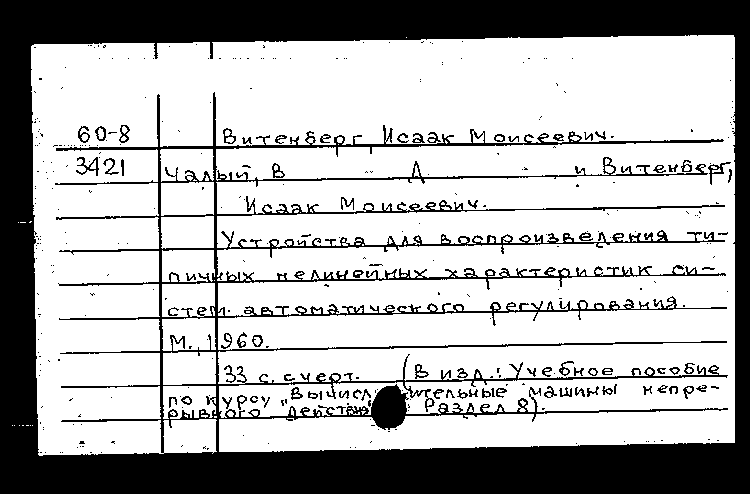 60-8 Витенберг, Исаак Моисеевич.
3421 Чалый, В А и Витенберг,
Исаак Моисеевич.
Устройства для воспроизведения ти-
пичных нелинейных характеристик си-
стем автоматического регулирования.
М., 1960.
33 с. с черт. (В изд.: Учебное пособие
по курсу „Вычислительные машины непре-
рывного действия Раздел 8).